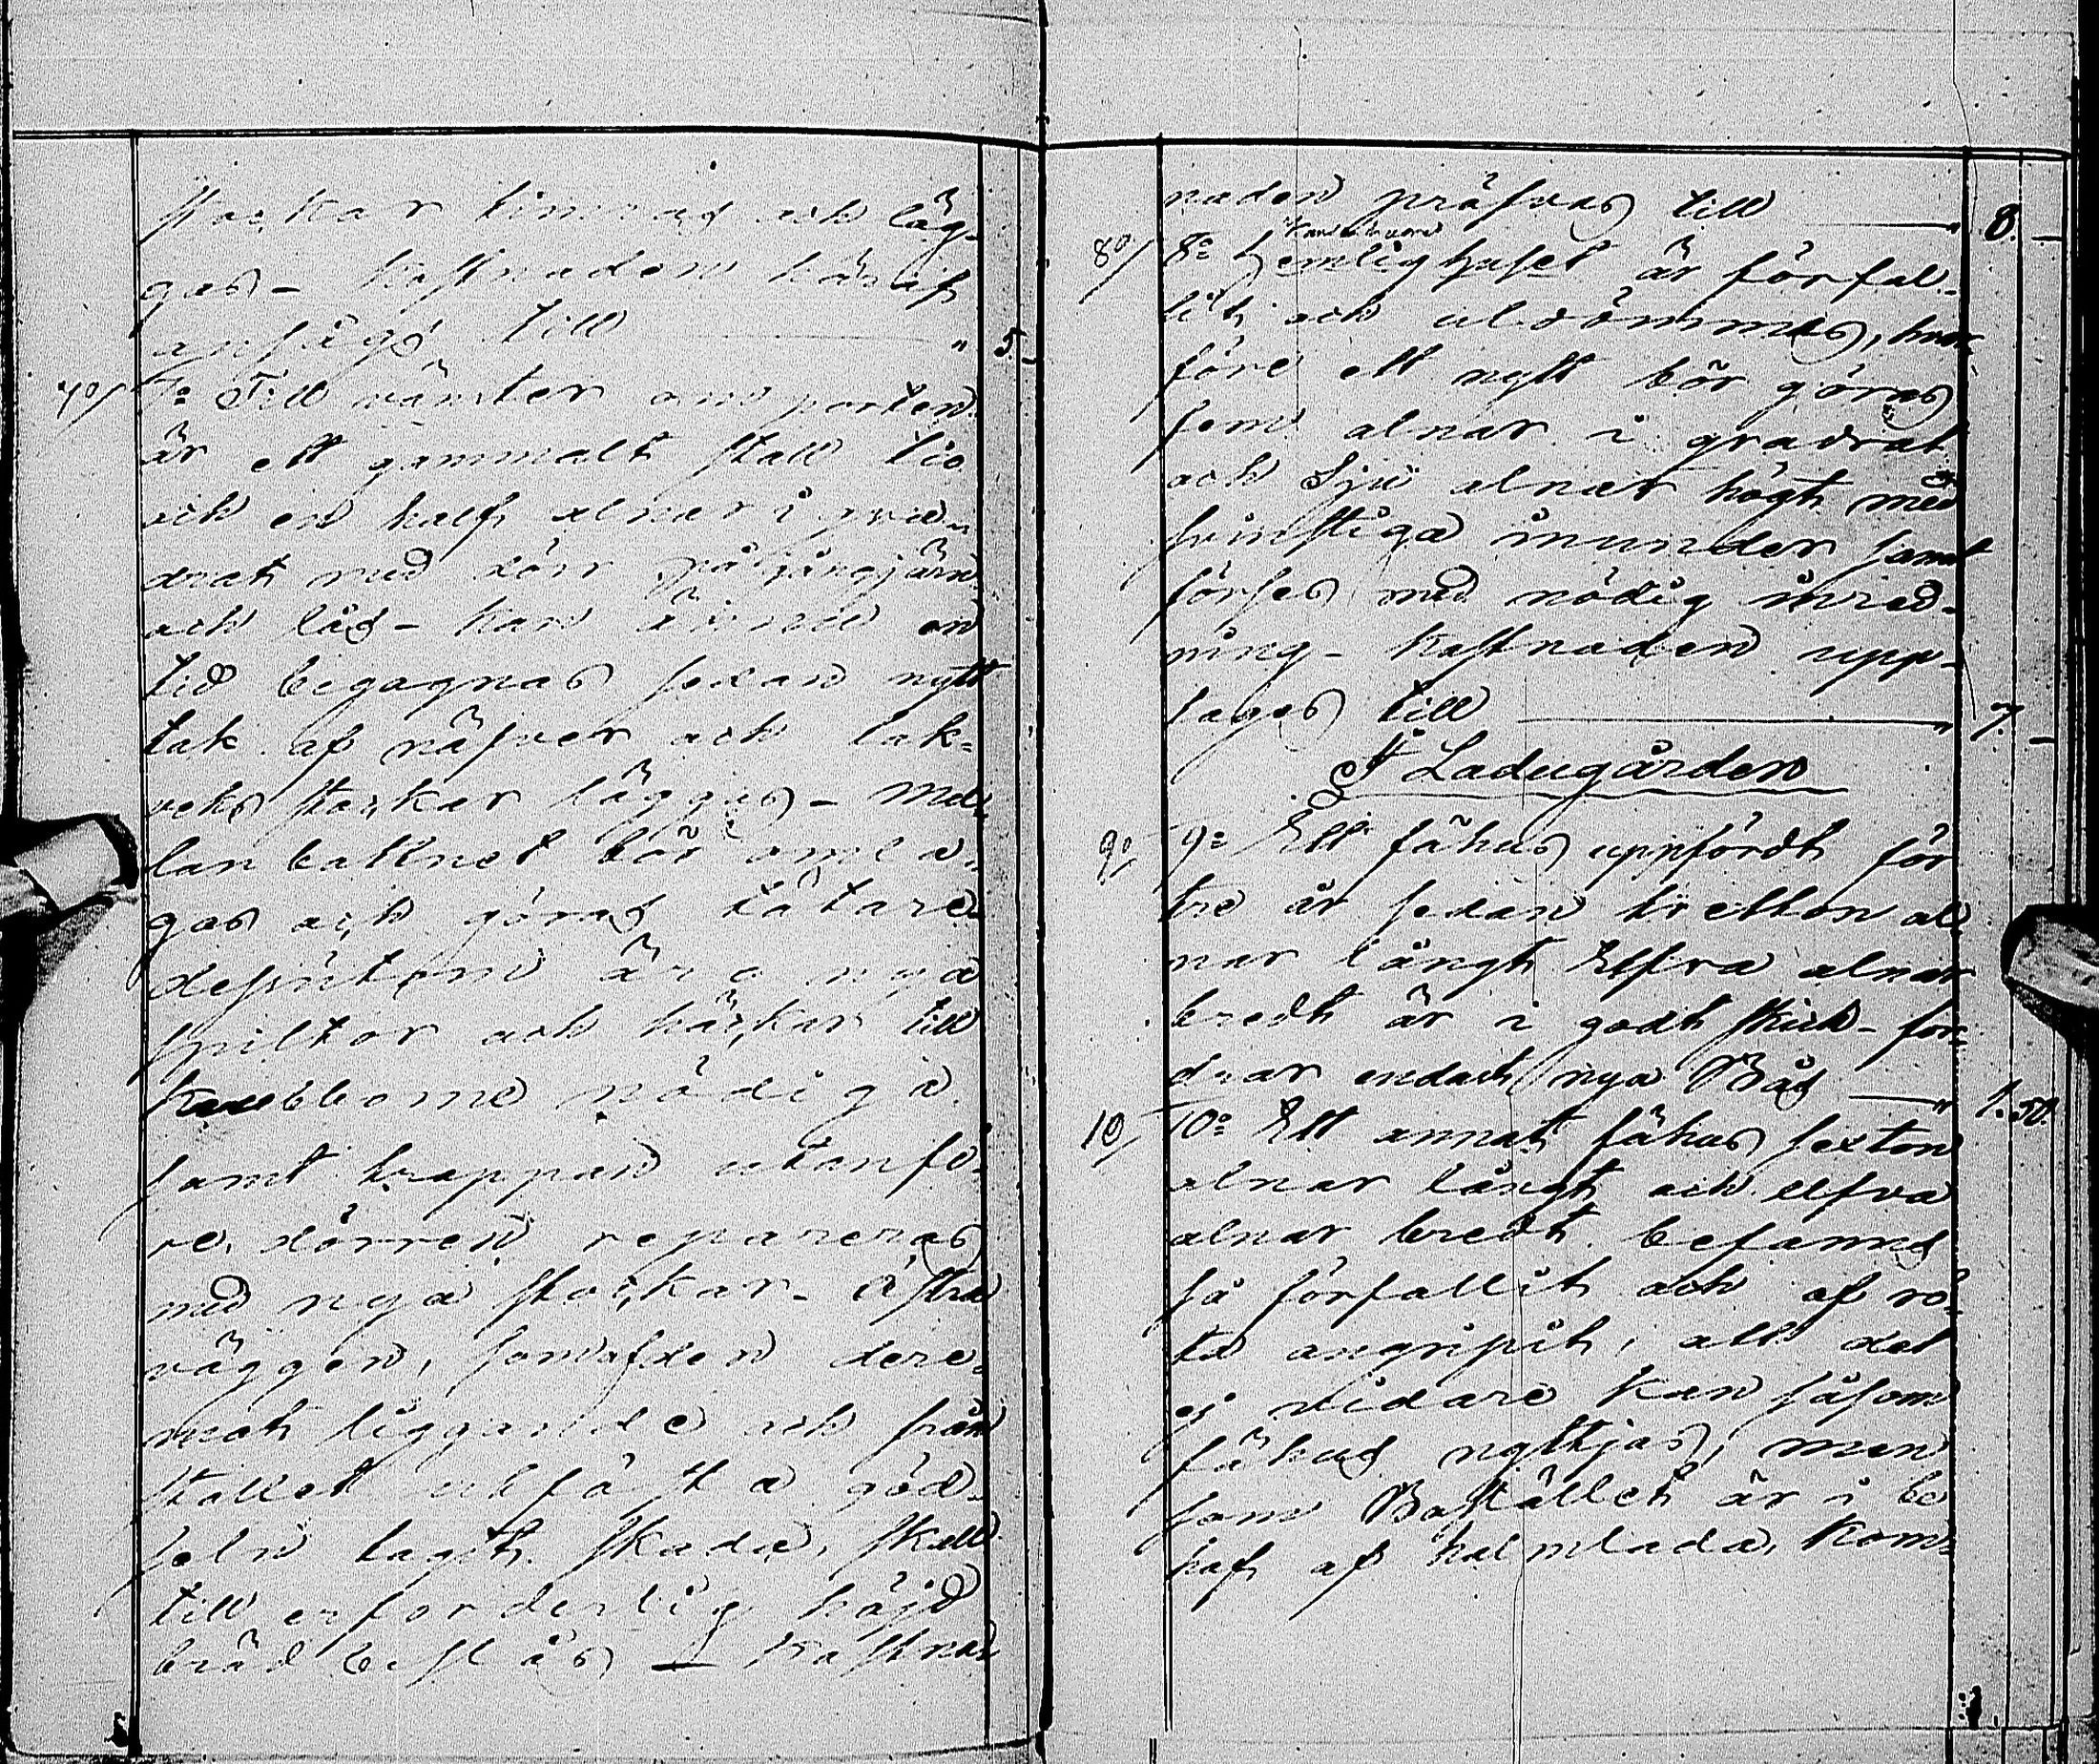 stockar timras och läg-
gas - kostnaden härtill
anslogs till " 5.-
7o/ 7o Till vänster om porten
är ett gammalt stall tio
och en half alnar i qva-
drat med dörr på gångjärn
och lås - kan ännu en
tid begagnas sedan nytt
tak af näfver och tak-
veds stockar lägges - Mel-
lan bottnet bör omläg-
gas och göras tätare
dessutom äro nya
spiltor och häckar till
nödiga
samt trappan utanfö-
re dörren repareras
med nya stockar - Östra
väggen, som af den dere-
mot liggande och från
stallet utkasta göd-
seln tagit skada, skall
till erforderlig höjd
brädbeslås - Kostna-
naden pröfvas till " 8.-
8o/ 8o Hemlighuset är förfal-
lit och utdömmes, hvar-
före ett nytt bör göras
fem alnar i qvadrat
och Sju alnar högt med
svinstiga inunder samt
förses med nödig inred-
ning - kostnaden upp-
tages till " 7.-
A Ladugården
9o/ 9o Ett fähus uppfördt för
tre år sedan tretton al-
nar långt Elfva alnar
bredt är i godt skick - for-
drar endast nya Bås " 1.50.
10/ 10o Ett annat fähus sexton
alnar långt och elfva
alnar bredt befanns
så förfallit och af rö-
ta angripit, att det
ej vidare kan såsom
fähus nyttjas, men
som Bostället är i be
hof af halmlada, kom-